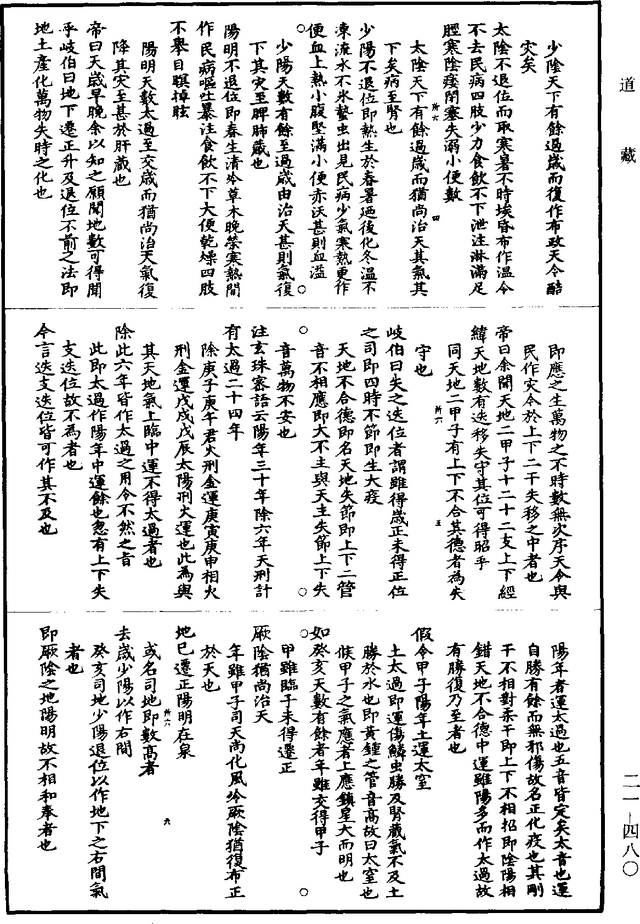 道藏
少陰天下有餘過歲而復作布政天令酷
災矣
太陰不退位而取寒暑不時埃昏布作溫令
不去民病四肢少力食飲不下泄注淋滿足
脛寒陰痿閉塞失溺小便數
所六 四
太陰天下有餘過歲而猶尚治天其氣其
下災病至腎也
少陽不退位即熱生於春暑迺後化冬溫不
凍流水不氷蟄虫出見民病少氣寒熱更作
便血上熱小腹堅滿小便赤沃甚則血溢
少陽天數有餘至過歲由治天甚則氣復
下其災至脾肺藏也
陽明不退位即春生清冷草木晚榮寒熱間
作民病嘔吐暴注食飲不下大便乾燥四肢
不舉目瞑掉眩
陽明天數太過至交歲而猶尚治天氣復
降其災至甚於肝藏也
帝曰天歲早晚余以知之願聞地數可得聞
乎岐伯曰地下遷正升及退位不前之法即
地土產化萬物失時之化也
即應之生萬物之不時數無次序天令與
民作災令於上下二干失移之中者也
帝曰余聞天地二甲子十干十二支上下經
緯天地數有迭移失守其位可得昭乎
同天地二甲子有上下不合其德者為失
所六 五
守也
岐伯曰失之迭位者謂雖得歲正未得正位
之司即四時不節即生大疫
天地不合德即名天地失節即上下二管
音不相應即大不主與天主失節上下失
音萬物不安也
注玄珠密語云陽年三十年除六年天刑計
有太過二十四年
除庚子庚午君火刑金運庚寅庚申相火
刑金運戊戌戊辰太陽刑火運也此為與
其天地氣上臨中運不得太過者也
除此六年皆作太過之用令不然之旨
此即太過作陽年中運餘也忽有上下失
支迭位故不為者也
今言迭支迭位皆可作其不及也
陽年者運太過也五音皆定矣太音也運
自勝有餘而無邪傷故名正化疫也其剛
干不相對柔干即上下不相招即陰陽相
錯天地不合德中運雖陽多而作太過故
有勝復乃至者也
假令甲子陽年土運太窒
土太過即運傷鱗虫勝及腎藏氣不及土
勝於水也即黃鍾之管音高故曰太窒也
候甲子之氣應者上應鎮星大而明也
如癸亥天數有餘者年雖交得甲子
甲雖臨子未得遷正
厥陰猶尚治天
年雖甲子司天尚化風令厥陰猶復布正
於天也
地已遷正陽明在泉
所六 六
或名司地即數高者
去歲少陽以作右間
癸亥司地少陽退位以作地下之右間氣
者也
即厥陰之地陽明故不相和奉者也
二一—四八〇